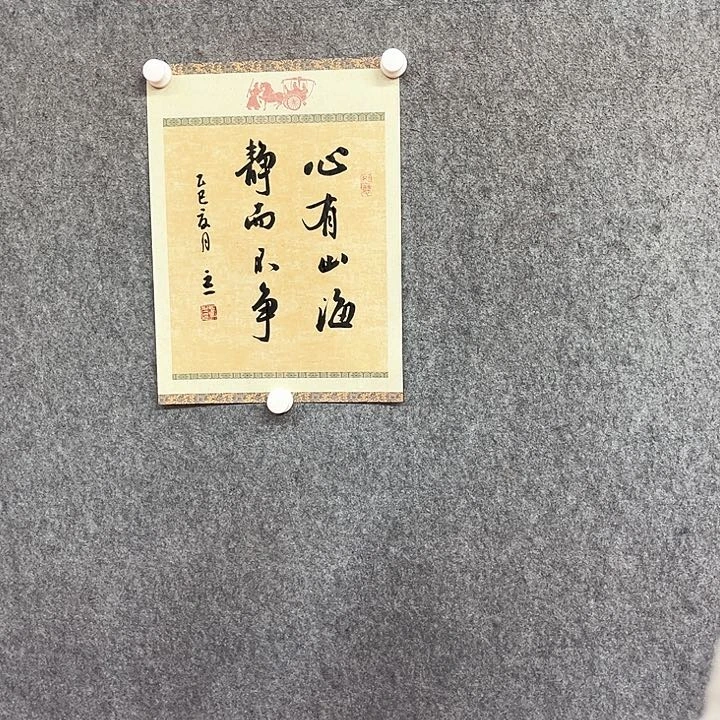 心有山海
静而不争
乙巳夏月 立一